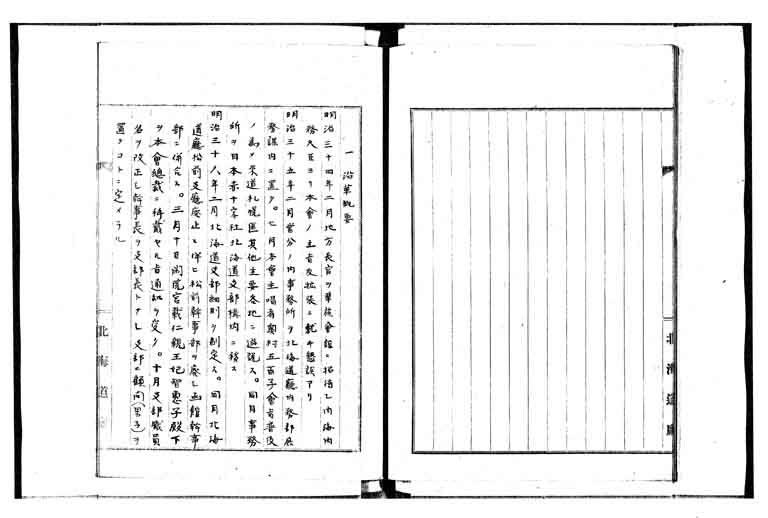 一 沿革概要
明治三十四年二月地方長官ヲ華族會館ニ招待シ内海内
務大臣ヨリ本會ノ主旨及拡張ニ就キ懇談アリ
明治三十五年二月當分ノ内事務所ヲ北海道廳内務部庶
務課内ニ置ク。七月本會主唱者奥村五百子會旨普及
ノ為メ来道札幌區其他主要各地ニ遊説ス。同月事務
所ヲ日本赤十字社北海道支部構内ニ移ス
明治三十八年二月北海道支部細則ヲ制定ス。同月北海
道廳松前支廳廃止ト伴ヒ松前幹事部ヲ廃シ函館幹事
部ニ併合ス。三月十日閑院宮載仁親王妃智惠子殿下
ヲ本會總裁ニ待戴セル旨通知ヲ受ク。十月支部職員
名ヲ改正シ幹事長ヲ支部長トナシ支部ニ顧問(男子)ヲ
置クコトニ定メラル
北海道
北海道廳